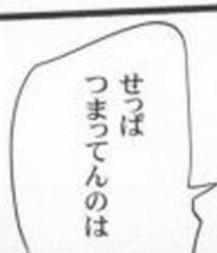 せっぱ
つまってんのは